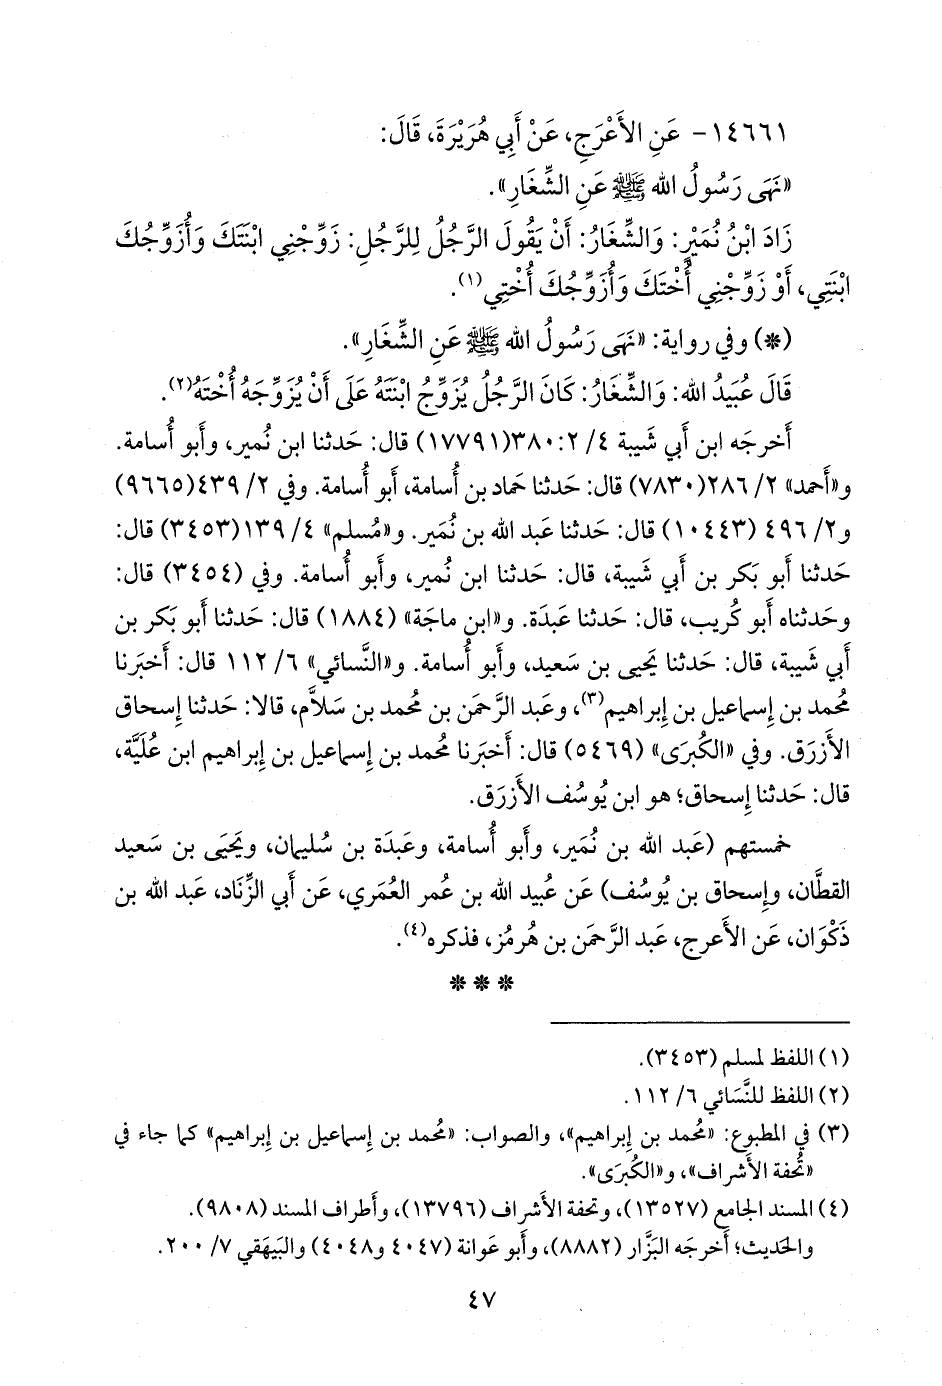 ١٤٦٦١- عَنِ الأَعْرَجِ، عَنْ أَبِي هُرَيْرَةَ، قَالَ:
«نَهَى رَسُولُ الله ﷺ عَنِ الشِّغَارِ».
زَادَ ابْنُ نُمَيْرٍ: وَالشِّغَارُ: أَنْ يَقُولَ الرَّجُلُ لِلرَّجُلِ: زَوِّجْنِي ابْنَتَكَ وَأُزَوِّجُكَ
ابْنَتِي، أَوْ زَوِّجْنِي أُخْتَكَ وَأُزَوِّجُكَ أُخْتِي(١).
(*) وفي رواية: «نَهَى رَسُولُ الله ﷺ عَنِ الشِّغَارِ».
قَالَ عُبَيدُ الله: وَالشِّغَارُ: كَانَ الرَّجُلُ يُزَوِّجُ ابْنَتَهُ عَلَى أَنْ يُزَوِّجَهُ أُخْتَهُ(٢).
أَخرجَه ابن أَبي شَيبة ٤/ ٢: ٣٨٠(١٧٧٩١) قال: حَدثنا ابن نُمير، وأَبو أُسامة.
و«أَحمد» ٢/ ٢٨٦(٧٨٣٠) قال: حَدثنا حَماد بن أُسامة، أَبو أُسامة. وفي ٢/ ٤٣٩(٩٦٦٥)
و٢/ ٤٩٦ (١٠٤٤٣) قال: حَدثنا عَبد الله بن نُمَير. و«مُسلم» ٤/ ١٣٩(٣٤٥٣) قال:
حَدثنا أَبو بَكر بن أَبي شَيبة، قال: حَدثنا ابن نُمير، وأَبو أُسامة. وفي (٣٤٥٤) قال:
وحَدثناه أَبو كُريب، قال: حَدثنا عَبدَة. و«ابن ماجَة» (١٨٨٤) قال: حَدثنا أَبو بَكر بن
أَبي شَيبة، قال: حَدثنا يَحيى بن سَعيد، وأَبو أُسامة. و«النَّسائي» ٦/ ١١٢ قال: أَخبَرنا
مُحمد بن إِسماعيل بن إِبراهيم(٣)، وعَبد الرَّحمَن بن مُحمد بن سَلاَّم، قالا: حَدثنا إِسحاق
الأَزرَق. وفي «الكُبرَى» (٥٤٦٩) قال: أَخبَرنا مُحمد بن إِسماعيل بن إِبراهيم ابن عُلَيَّة،
قال: حَدثنا إِسحاق؛ هو ابن يُوسُف الأَزرَق.
خمستهم (عَبد الله بن نُمَير، وأَبو أُسامة، وعَبدَة بن سُليمان، ويَحيَى بن سَعيد
القطَّان، وإِسحاق بن يُوسُف) عَن عُبيد الله بن عُمر العُمَري، عَن أَبي الزِّناد، عَبد الله بن
ذَكْوَان، عَن الأَعرج، عَبد الرَّحمَن بن هُرمُز، فذكره(٤).
* * *
(١) اللفظ لمسلم (٣٤٥٣).
(٢) اللفظ للنَّسَائي ٦/ ١١٢.
(٣) في المطبوع: «مُحمد بن إِبراهيم»، والصواب: «مُحمد بن إِسماعيل بن إِبراهيم» كما جاء في
«تُحفة الأَشراف»، و«الكُبرَى».
(٤) المسند الجامع (١٣٥٢٧)، وتحفة الأَشراف (١٣٧٩٦)، وأَطراف المسند (٩٨٠٨).
والحَديث؛ أَخرجَه البَزَّار (٨٨٨٢)، وأَبو عَوانة (٤٠٤٧ و٤٠٤٨) والبَيهَقي ٧/ ٢٠٠.
٤٧